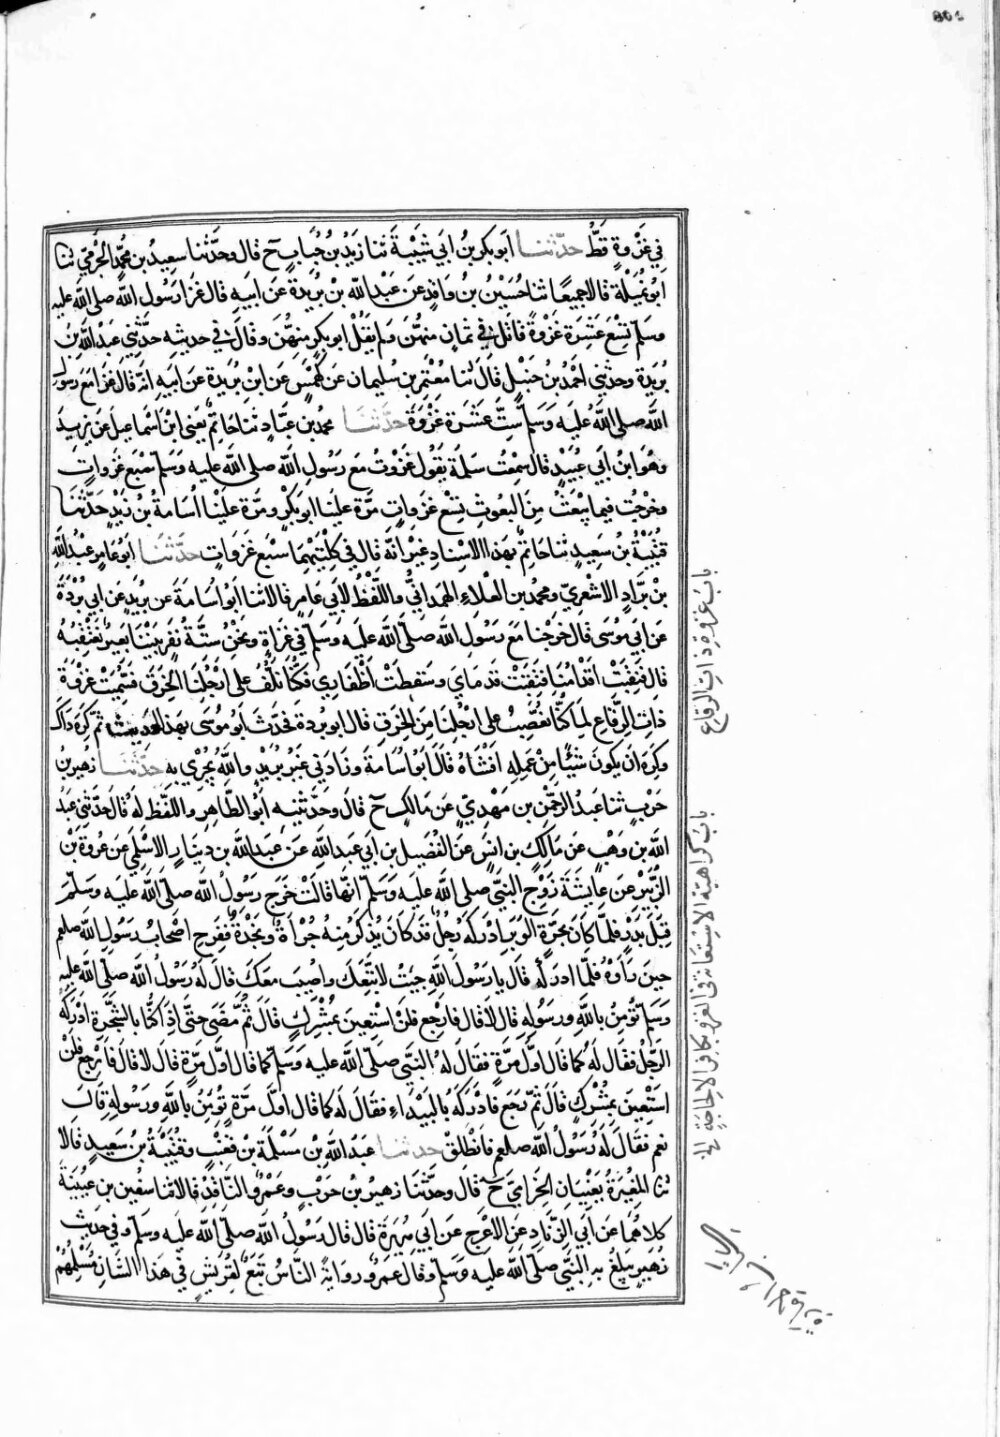 في غزوة قط حدثنا ابو بكر بن ابي شيبة ثنا زيد بن حباب ح قال وحدثنا سعيد بن محمد الجرمي ثنا
ابو تميلة قالا جميعا ثنا حسين بن واقد عن عبد الله بن بريدة عن ابيه قال غزا رسول الله صلى الله عليه
وسلم تسع عشرة غزوة قاتل في ثمان منهن ولم يقل ابو بكر منهن وقال في حديثه حدثني عبد الله بن
بريدة وحدثني احمد بن حنبل قال ثنا معتمر بن سليمان عن كهمس عن ابن بريدة عن ابيه انه قال غزا مع رسول
الله صلى الله عليه وسلم ست عشرة غزوة حدثنا محمد بن عباد ثنا حاتم يعنى ابن اسماعيل عن يزيد
وهو ابن ابي عبيد قال سمعت سلمة يقول غزوت مع رسول الله صلى الله عليه وسلم سبع غزوات
وخرجت فيما يبعث من البعوث تسع غزوات مرة علينا ابو بكر ومرة علينا اسامة بن زيد حدثنا
قتيبة بن سعيد ثنا حاتم بهذا الاسناد غير انه قال في كلتيهما سبع غزوات حدثنا ابو عامر عبد الله
بن براد الاشعري ومحمد بن العلاء الهمداني واللفظ لابي عامر قالا ثنا ابو اسامة عن بريد عن ابي بردة
عن ابي موسى قال خرجنا مع رسول الله صلى الله عليه وسلم في غزاة ونحن ستة نفر بيننا بعير نعتقبه
قال فنقبت اقدامنا فنقبت قدماي وسقطت اظفاري فكنا نلف على ارجلنا الخرق فسميت غزوة
ذات الرقاع لما كنا نعصب على ارجلنا من الخرق قال ابو بردة فحدث ابو موسى بهذا الحديث ثم كره ذاك
وكره ان يكون شيئا من عمله افشاه قال ابو اسامة وزادني غير بريد والله يجزي به حدثنا زهير بن
حرب ثنا عبد الرحمن بن مهدي عن مالك ح قال وحدثنيه ابو الطاهر واللفظ له قال حدثني عبد
الله بن وهب عن مالك بن انس عن الفضيل بن ابي عبد الله عن عبد الله بن دينار الاسلمي عن عروة بن
الزبير عن عايشة زوج النبي صلى الله عليه وسلم انها قالت خرج رسول الله صلى الله عليه وسلم
قبل بدر فلما كان بحرة الوبر ادركه رجل قد كان يذكر منه جراة ونجدة ففرح اصحاب رسول الله صلعم
حين راوه فلما ادركه قال يا رسول الله جيت لاتبعك واصيب معك قال له رسول الله صلى الله عليه
وسلم تؤمن بالله ورسوله قال لا قال فارجع فلن استعين بمشرك قال ثم مضى حتى اذا كنا بالشجرة ادركه
الرجل فقال له كما قال اول مرة فقال له النبي صلى الله عليه وسلم كما قال اول مرة قال لا قال فارجع فلن
استعين بمشرك قال ثم رجع فادركه بالبيداء فقال له كما قال اول مرة تؤمن بالله ورسوله قال
نعم فقال له رسول الله صلعم فانطلق حدثنا عبد الله بن مسلمة بن قعنب وقتيبة بن سعيد قالا
ثنا المغيرة يعنيان الحزامي ح قال وحدثنا زهير بن حرب وعمرو الناقد قالا ثنا سفين بن عيينة
كلاهما عن ابي الزناد عن الاعرج عن ابي هريرة قال قال رسول الله صلى الله عليه وسلم وفي حديث
زهير يبلغ به النبي صلى الله عليه وسلم وقال عمرو رواية الناس تبع لقريش في هذا الشان مسلمهم
باب غزوة ذات الرقاع
باب كراهية الاستعانة في الغزو بكافر الا لحاجة